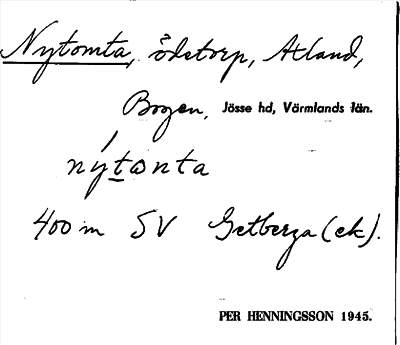 Nytomta, ödetorp, Åland,
Bogen, Jösse hd, Värmlands län.
nýtωnta
400 m SV Getberga (ek).
PER HENNINGSSON 1945.